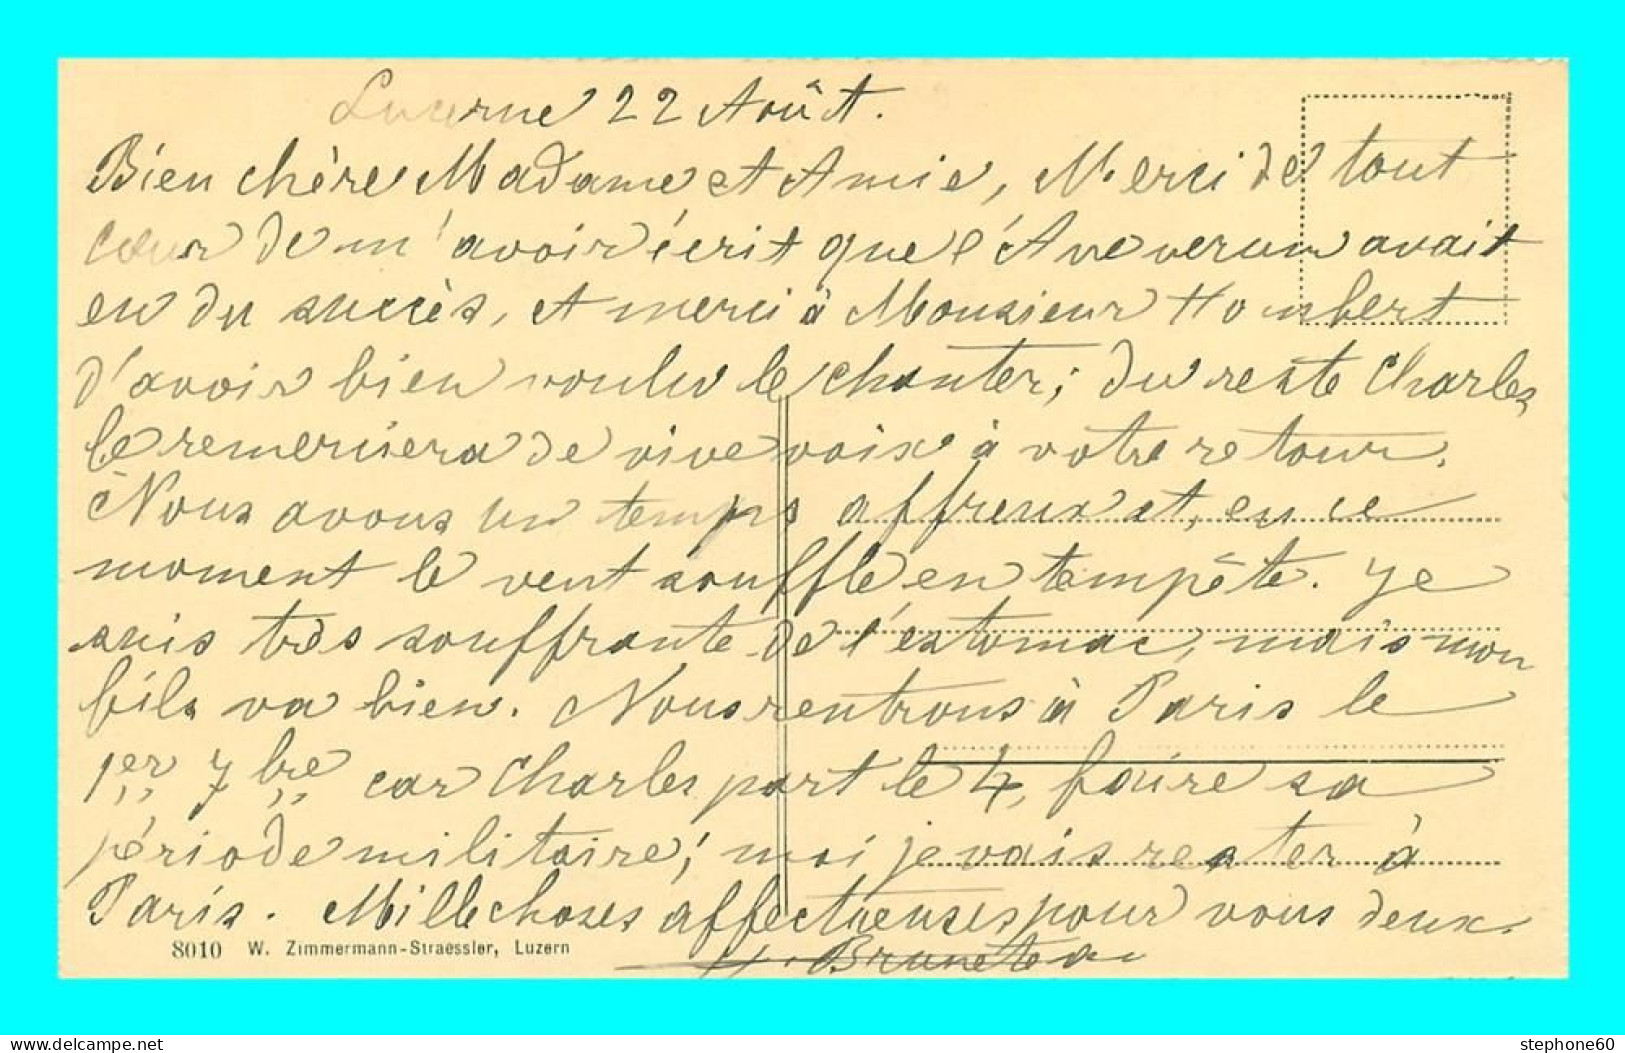 Lucerne 22 Août.
Bien chère Madame et Amie, Merci de tout
cœur de m'avoir écrit que l'Ave verum avait
eu du succès, et merci à Monsieur Hombert
d'avoir bien voulu le chanter; du reste Charles
le remerciera de vive voix à votre retour.
Nous avons un temps affreux et, en ce
moment le vent souffle en tempête. Je
suis très souffrante de l'estomac, mais mon
fils va bien. Nous rentrons à Paris le
1er 7bre car Charles part le 4, faire sa
période militaire; moi je vais rester à
Paris. Mille choses affectueuses pour vous deux.
8010 W. Zimmermann-Straessler, Luzern
delcampe.net
stephone60